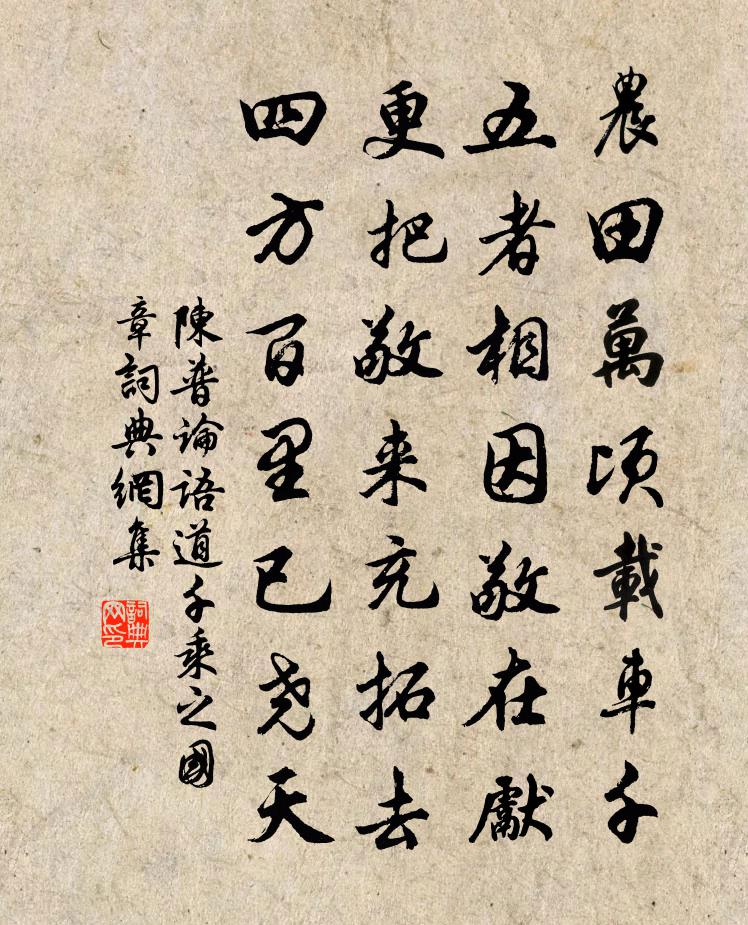 農田萬頃載車千
五者相因敬在獻
更把敬来充拓去
四方百里已尧天
陳普論語道千乘之國
章詞典網集
詞典
网印